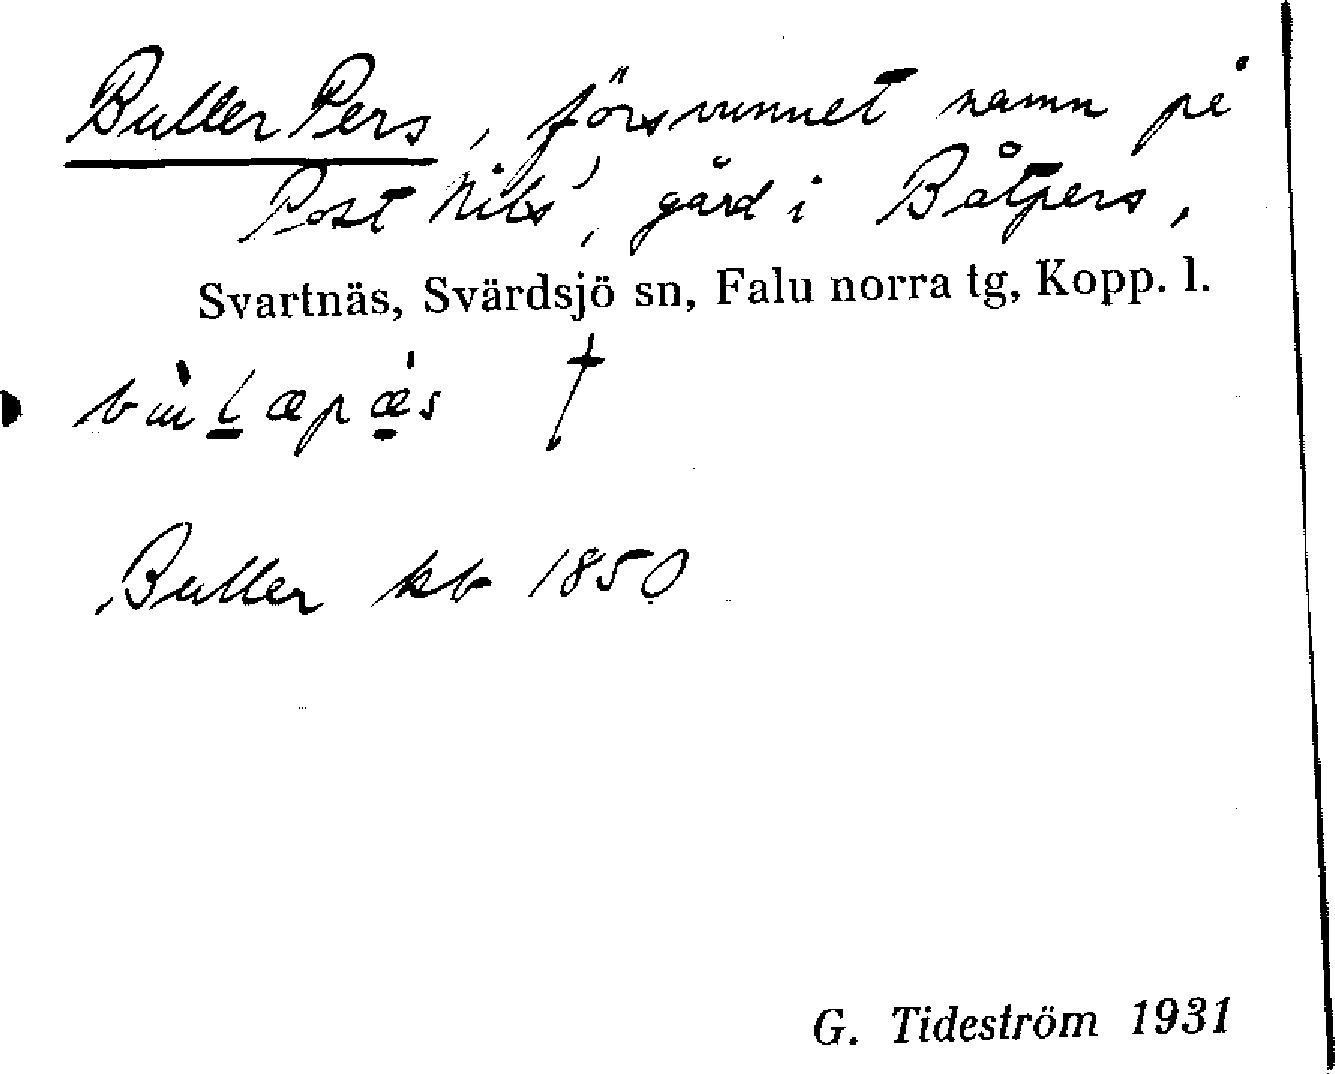 Buller Pers, försvunnet namn på
Post Nils', gård i Båtpers,
Svartnäs, Svärdsjö sn, Falu norra tg, Kopp. l.
†
Buller kb 1850
G. Tideström 1931